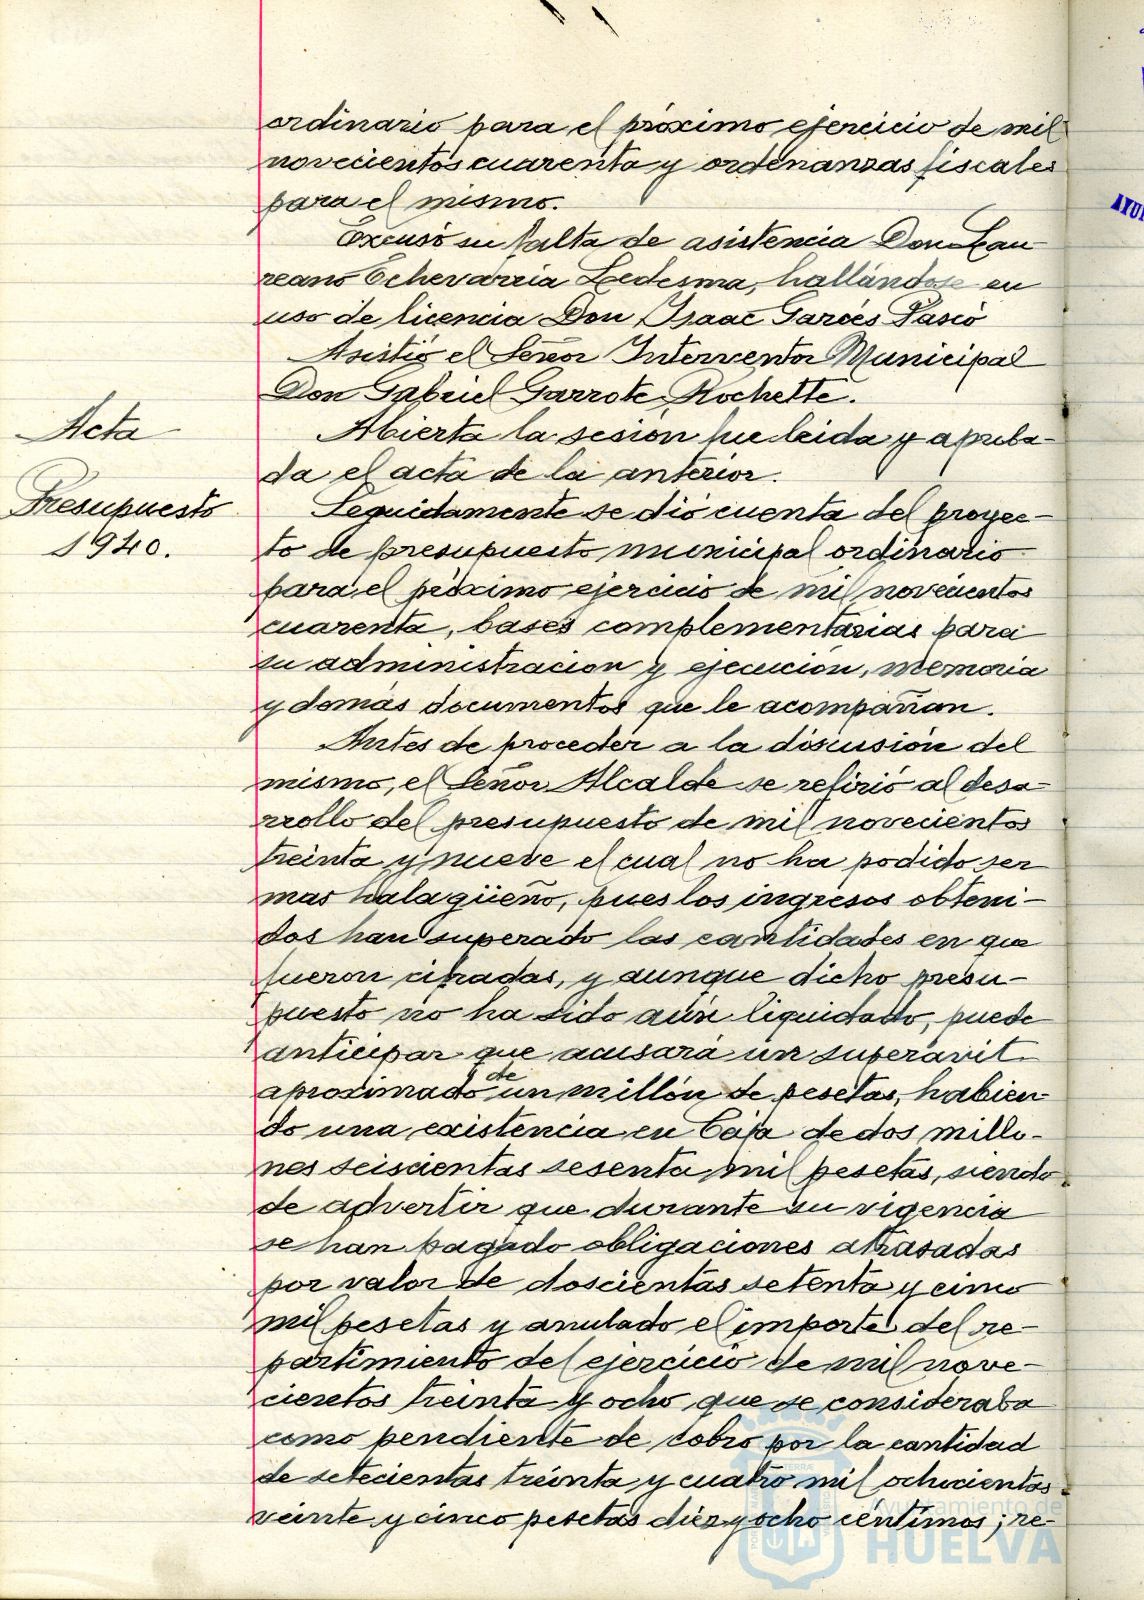 ordinario para el próximo ejercicio de mil
novecientos cuarenta y ordenanzas fiscales
para el mismo.
Excusó su falta de asistencia Don Lau-
reano Echevarria Ledesma, hallándose en
uso de licencia Don Isaac Garcés Tasio
Asistió el Señor Interventor Municipal
Don Gabriel Garrote Rochette.
Acta
Abierta la sesión fue leida y aproba-
da el acta de la anterior.
Presupuesto
1940.
Seguidamente se dió cuenta del proyec-
to de presupuesto municipal ordinario
para el próximo ejercicio de mil novecientos
cuarenta, bases complementarias para
su administracion y ejecución, memoria
y domás documentos que le acompañan.
Antes de proceder a la discusión del
mismo, el Señor Alcalde se refirió al desa-
rrollo del presupuesto de mil novecientos
treinta y nueve el cual no ha podido ser
mas halagüeño, pues los ingresos obteni-
dos han superado las cantidades en que
fueron cifradas, y aunque dicho presu-
puesto no ha sido aún liquidado, puede
anticipar que acusará un superavit
aproximado de un millón de pesetas, habien-
do una existencia en Caja de dos millo-
nes seiscientas sesenta mil pesetas, siendo
de advertir que durante su vigencia
se han pagado obligaciones atrasadas
por valor de doscientas setenta y cinco
mil pesetas y anulado el importe del re-
partimiento del ejercicio de mil nove-
cientos treinta y ocho que se consideraba
como pendiente de cobro por la cantidad
de setecientas treinta y cuatro mil ochocientas
veinte y cinco pesetas diez y ocho centimos; re-
Ayuntamiento de
HUELVA